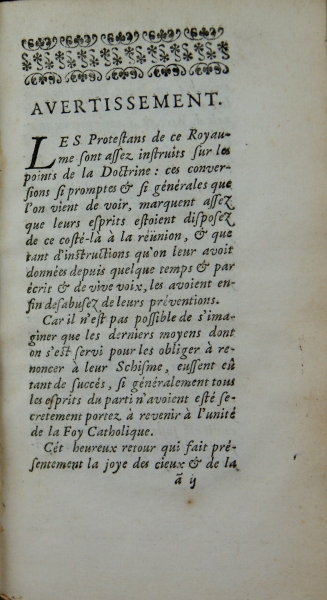 AVERTISSEMENT.
LES Protestans de ce Royau-
me ſont aſſez inſtruits ſur les
points de la Doctrine : ces conver-
ſions ſi promptes & ſi générales que
l'on vient de voir, marquent aſſez
que leurs eſprits eſtoient diſpoſez
de ce coſté-là à la réünion, & que
tant d'inſtructions qu'on leur avoit
données depuis quelque temps & par
écrit & de vive voix, les avoient en-
fin desabuſez de leurs préventions.
Car il n'eſt pas poſſible de s'ima-
giner que les derniers moyens dont
on s'eſt ſervi pour les obliger à re-
noncer à leur Schiſme, euſſent eû
tant de ſuccés, ſi généralement tous
les eſprits du parti n'avoient eſté ſe-
cretement portez à revenir à l'unité
de la Foy Catholique.
Cét heureux retour qui fait pré-
ſentement la joye des cieux & de la
ã ij